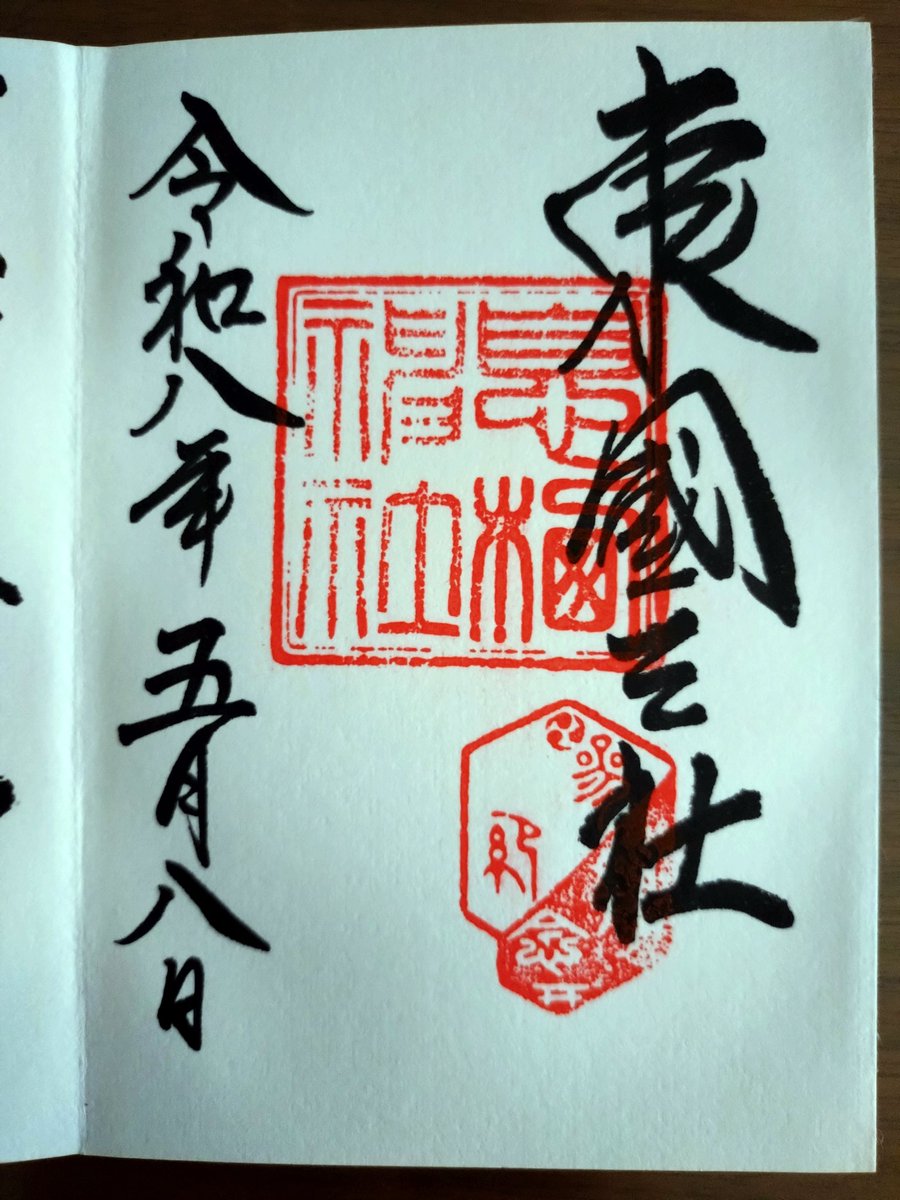 東國三社
息栖
神社
令和八年五月八日